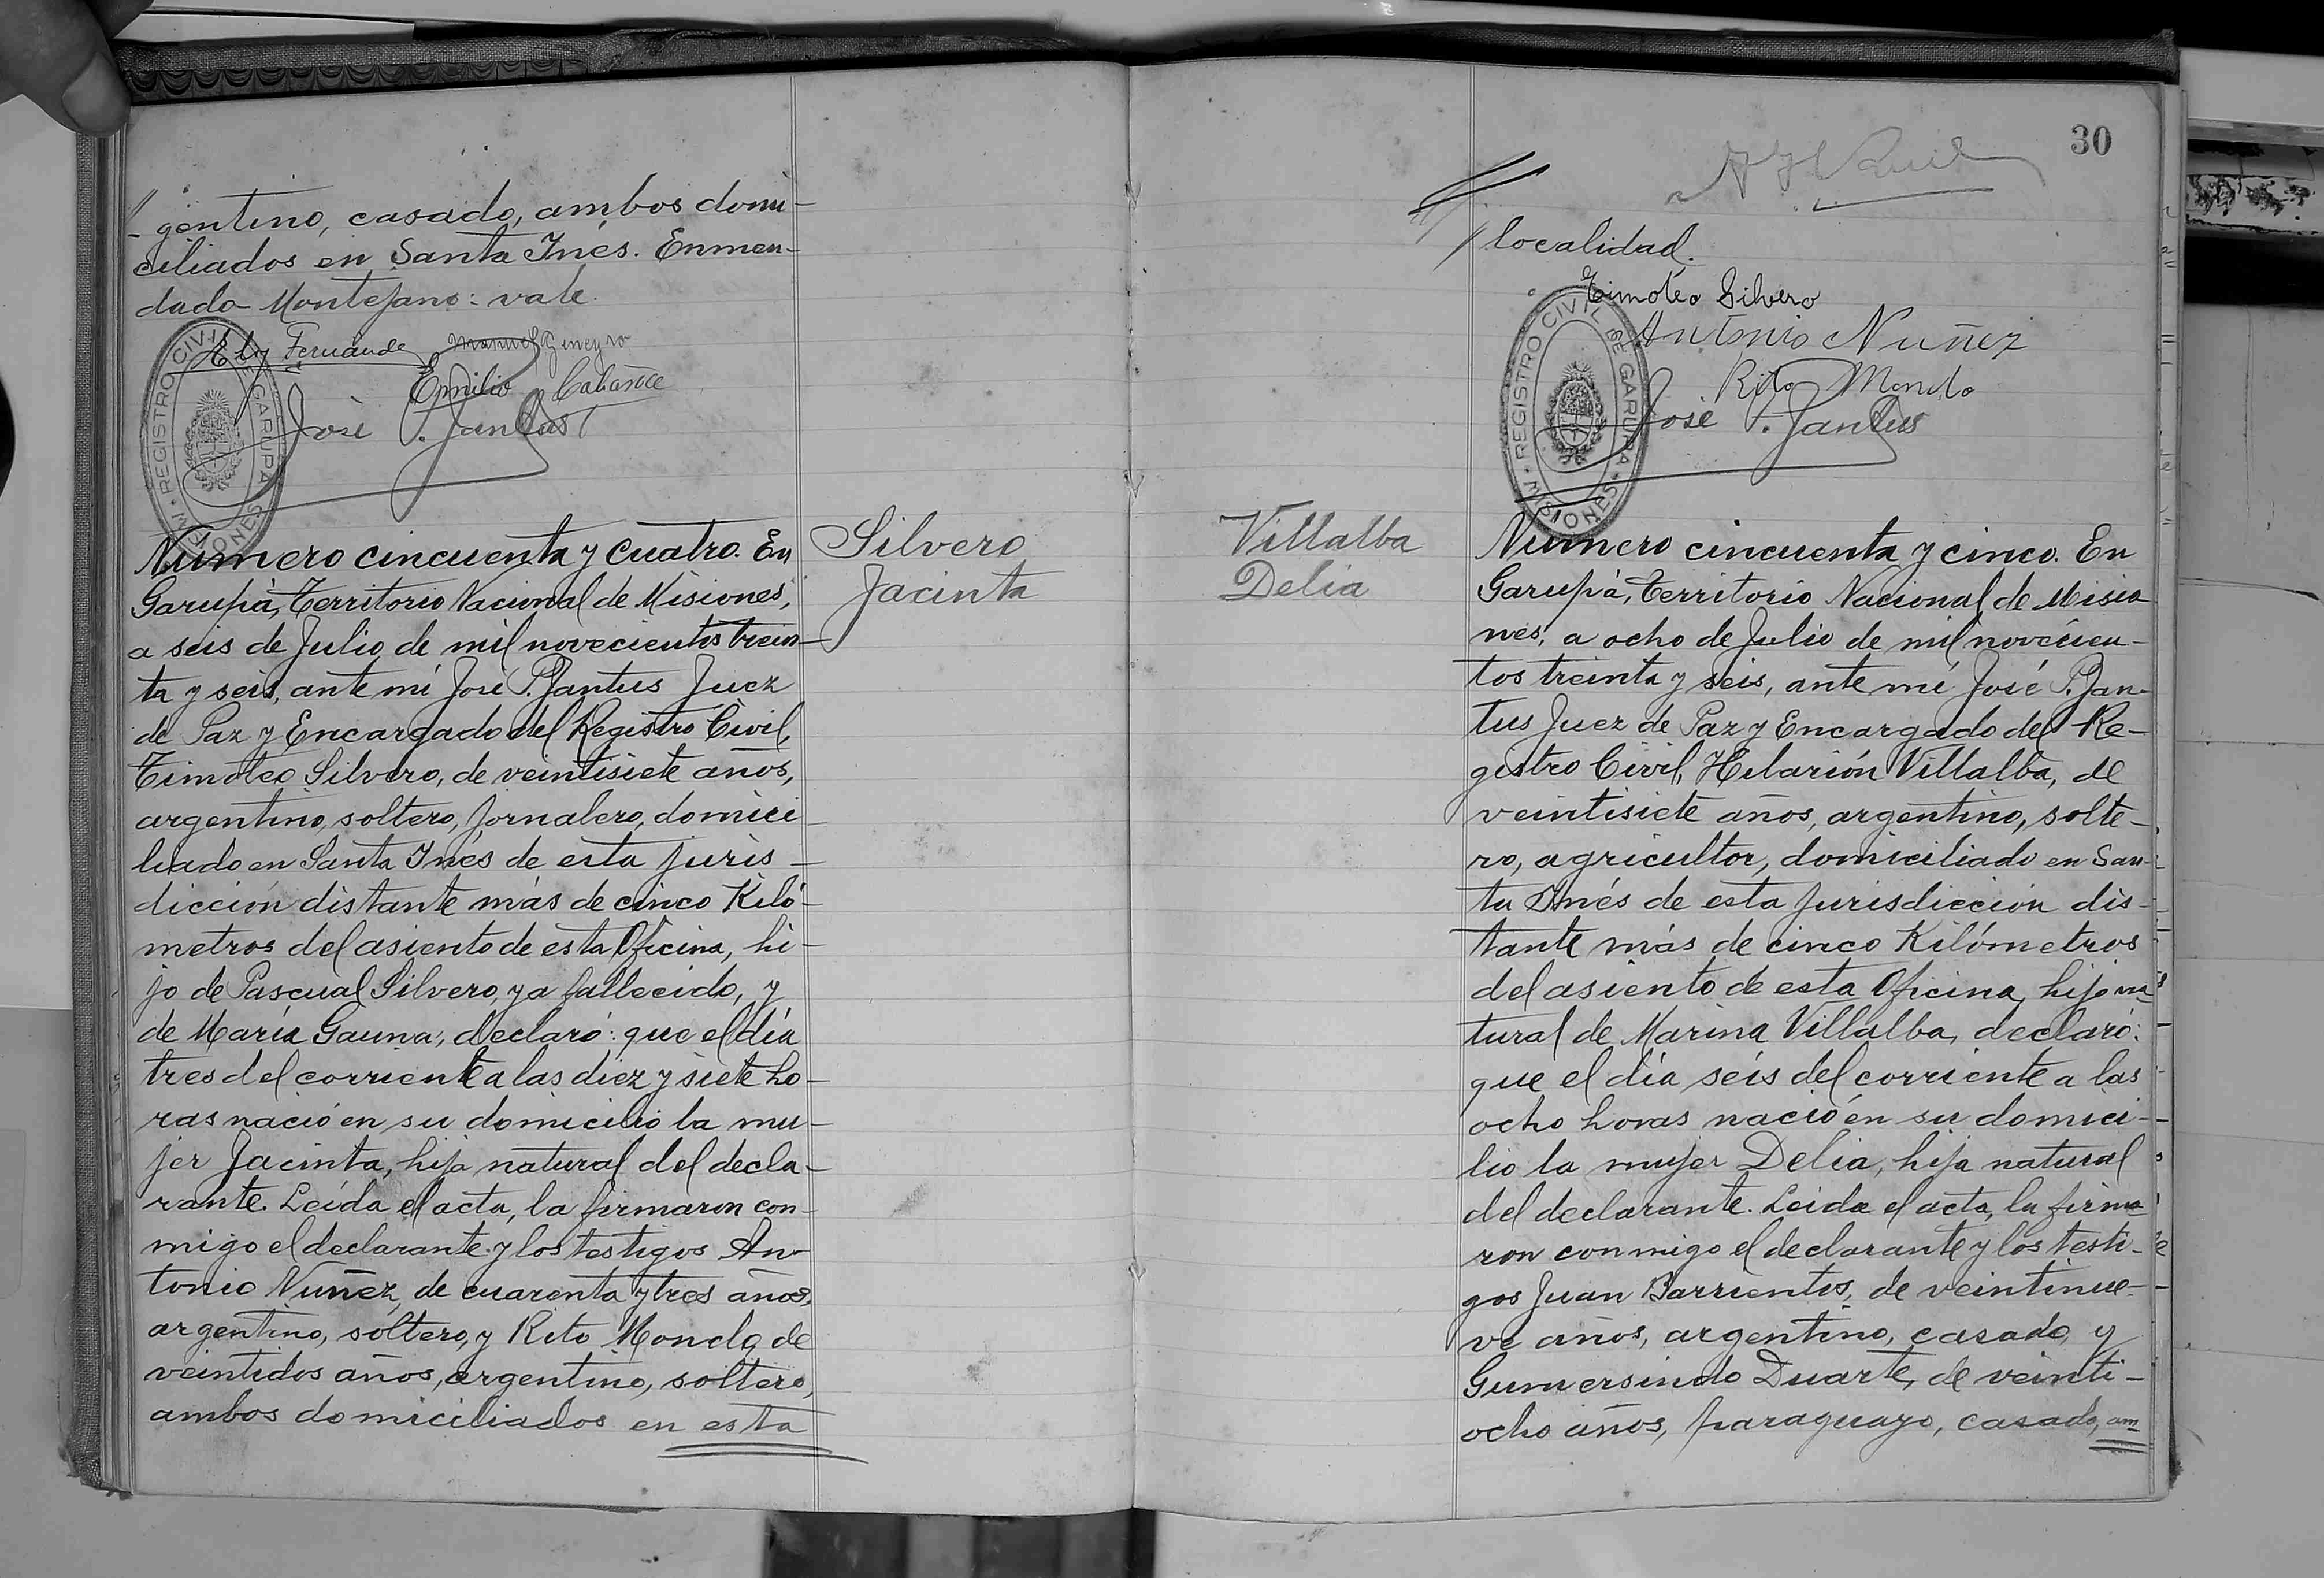 gentino, casado, ambos domi-
ciliados en Santa Inés. Enmen-
dado Montejano: vale.
Ely Fernande
Emilio Cabañas
José P. Jantus
REGISTRO CIVIL DE GARUPA MISIONES
Número cincuenta y cuatro. En
Garupá, Territorio Nacional de Misiones,
a seis de Julio de mil novecientos trein-
ta y seis, ante mí José P. Jantus Juez
de Paz y Encargado del Registro Civil,
Timoteo Silvero, de veintisiete años,
argentino, soltero, jornalero, domici
liado en Santa Inés de esta juris-
dicción distante más de cinco Kiló-
metros del asiento de esta Oficina, hi-
jo de Pascual Silvero, ya fallecido, y
de María Gauna, declaró: que el día
tres del corriente a las diez y siete ho-
ras nació en su domicilio la mu-
jer Jacinta, hija natural del decla-
rante. Leída el acta, la firmaron con-
migo el declarante y los testigos An-
tonio Nuñez, de cuarenta y tres años,
argentino, soltero, y Rito Mondo, de
veintidos años, argentino, soltero,
ambos domiciliados en esta
Silvero
Jacinta
30
localidad.
Timoteo Silvero
Antonio Nuñez
Rito Mondo
José P. Jantus
REGISTRO CIVIL DE GARUPA MISIONES
Villalba
Delia
Número cincuenta y cinco. En
Garupá, Territorio Nacional de Misio
nes, a ocho de Julio de mil novecien-
tos treinta y seis, ante mí José P. Jan-
tus Juez de Paz y Encargado del Re-
gistro Civil, Hilarión Villalba, de
veintisiete años, argentino, solte-
ro, agricultor, domiciliado en San-
ta Inés de esta jurisdicción dis-
tante más de cinco Kilómetros
del asiento de esta Oficina, hijo na
tural de Marina Villalba, declaró:
que el día seis del corriente a las
ocho horas nació en su domici-
lio la mujer Delia, hija natural
del declarante. Leída el acta, la firma
ron conmigo el declarante y los testi-
gos Juan Barrientos, de veintinue-
ve años, argentino, casado, y
Gumersindo Duarte, de veinti-
ocho años, paraguayo, casado, am